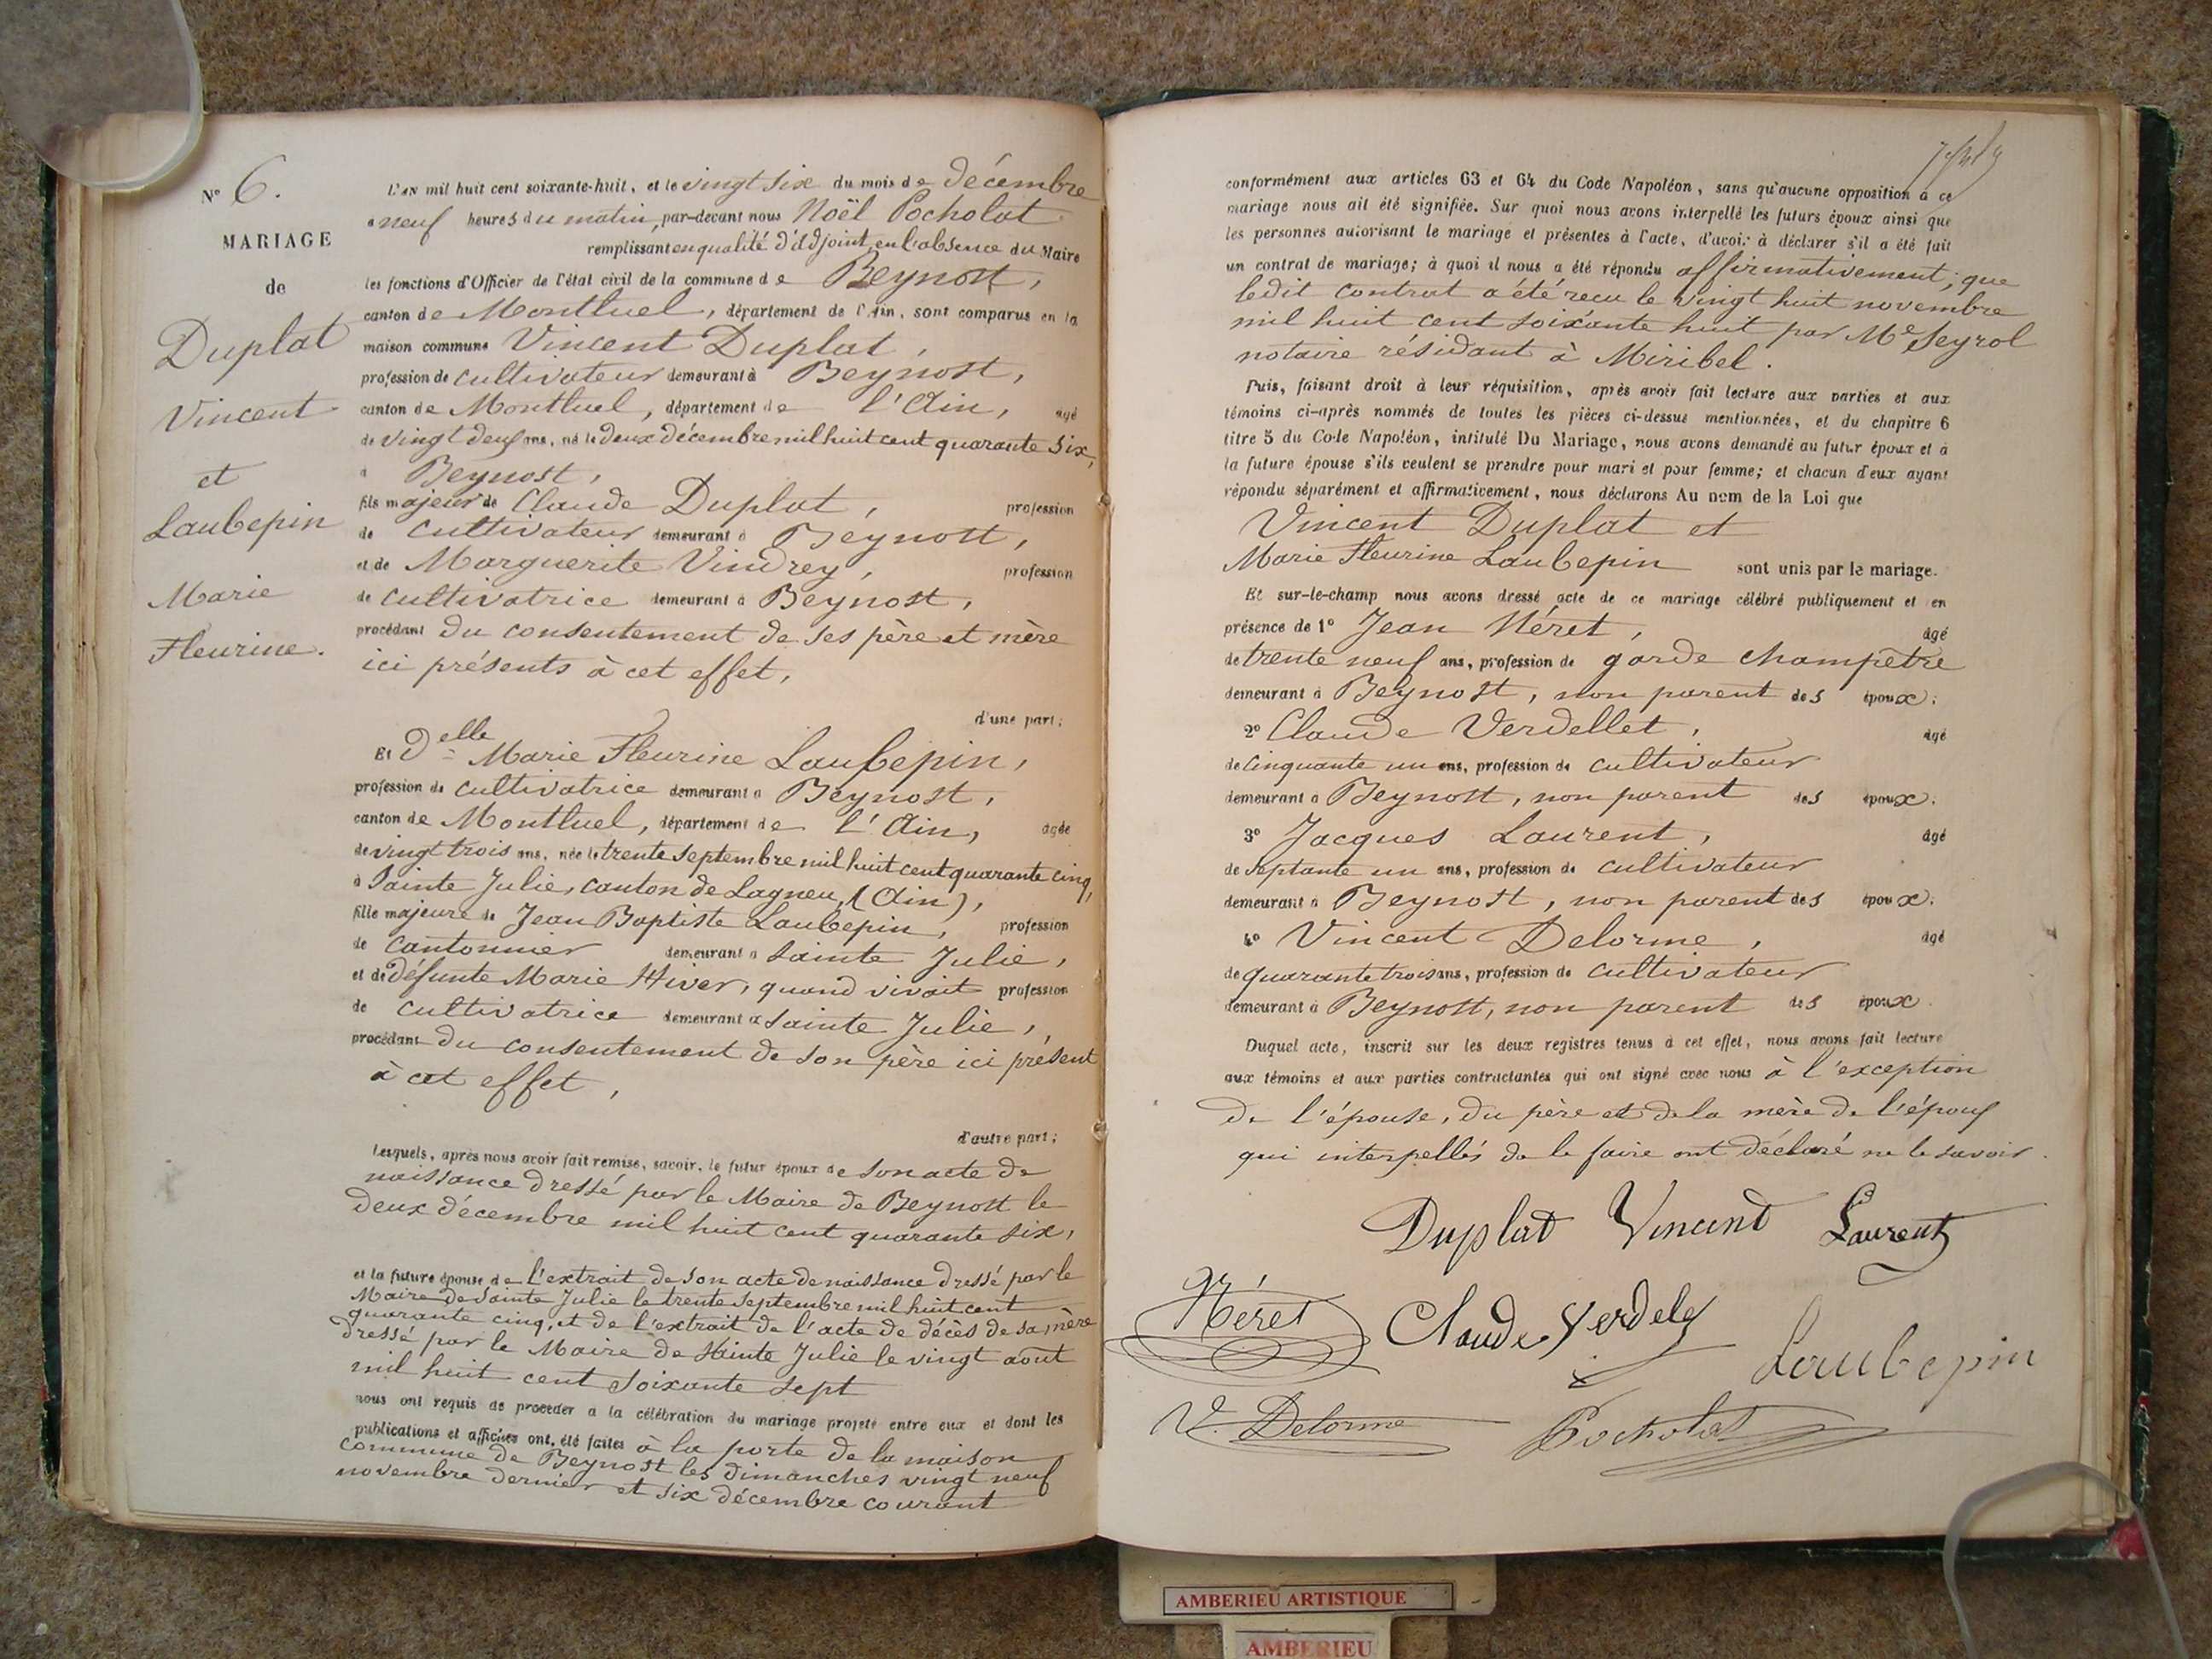 N° 6.
MARIAGE
de
Duplat
Vincent
et
Laubepin
Marie
Fleurine.
L'AN mil huit cent soixante-huit, et le vingt six du mois de décembre
à neuf heures du matin, par-devant nous Noël Pocholat
remplissant en qualité d'adjoint, en l'absence du Maire
les fonctions d'Officier de l'état civil de la commune de Beynost,
canton de Montluel, département de l'Ain, sont comparus en la
maison commune Vincent Duplat,
profession de cultivateur demeurant à Beynost,
canton de Montluel, département de l'Ain, âgé
de vingt deux ans, né le deux décembre mil huit cent quarante six,
à Beynost,
fils majeur de Claude Duplat, profession
de cultivateur demeurant à Beynost,
et de Marguerite Vindrey, profession
de cultivatrice demeurant à Beynost,
procédant du consentement de ses père et mère
ici présents à cet effet,
d'une part;
Et Delle Marie Fleurine Laubepin,
profession de cultivatrice demeurant à Beynost,
canton de Montluel, département de l'Ain, âgée
de vingt trois ans, née le trente septembre mil huit cent quarante cinq,
à Sainte Julie, canton de Lagneu, (Ain),
fille majeure de Jean Baptiste Laubepin, profession
de cantonnier demeurant à Sainte Julie,
et de défunte Marie Hiver, quand vivait profession
de cultivatrice demeurant à Sainte Julie,
procédant du consentement de son père ici présent
à cet effet,
d'autre part;
Lesquels, après nous avoir fait remise, savoir, le futur époux de son acte de
naissance dressé par le Maire de Beynost le
deux décembre mil huit cent quarante six,
et la future épouse de l'extrait de son acte de naissance dressé par le
Maire de Sainte Julie le trente septembre mil huit cent
quarante cinq, et de l'extrait de l'acte de décès de sa mère
dressé par le Maire de Sainte Julie le vingt août
mil huit cent soixante sept
nous ont requis de procéder à la célébration du mariage projeté entre eux et dont les
publications et affiches ont été faites à la porte de la maison
commune de Beynost les dimanches vingt neuf
novembre dernier et six décembre courant
conformément aux articles 63 et 64 du Code Napoléon, sans qu'aucune opposition à ce
mariage nous ait été signifiée. Sur quoi nous avons interpellé les futurs époux ainsi que
les personnes autorisant le mariage et présentes à l'acte, d'avoir à déclarer s'il a été fait
un contrat de mariage; à quoi il nous a été répondu affirmativement; que
ledit contrat a été reçu le vingt huit novembre
mil huit cent soixante huit par Me Seyrol
notaire résidant à Miribel.
Puis, faisant droit à leur réquisition, après avoir fait lecture aux parties et aux
témoins ci-après nommés de toutes les pièces ci-dessus mentionnées, et du chapitre 6
titre 5 du Code Napoléon, intitulé Du Mariage, nous avons demandé au futur époux et à
la future épouse s'ils veulent se prendre pour mari et pour femme; et chacun d'eux ayant
répondu séparément et affirmativement, nous déclarons Au nom de la Loi que
Vincent Duplat et
Marie Fleurine Laubepin sont unis par le mariage.
Et sur-le-champ nous avons dressé acte de ce mariage célébré publiquement et en
présence de 1° Jean Néret, âgé
de trente neuf ans, profession de garde champêtre
demeurant à Beynost, non parent des époux;
2° Claude Verdellet, âgé
de cinquante un ans, profession de cultivateur
demeurant à Beynost, non parent des époux;
3° Jacques Laurent, âgé
de septante un ans, profession de cultivateur
demeurant à Beynost, non parent des époux;
4° Vincent Delorme, âgé
de quarante trois ans, profession de cultivateur
demeurant à Beynost, non parent des époux.
Duquel acte, inscrit sur les deux registres tenus à cet effet, nous avons fait lecture
aux témoins et aux parties contractantes qui ont signé avec nous à l'exception
de l'épouse, du père et de la mère de l'époux
qui interpellés de le faire ont déclaré ne le savoir.
Duplat Vincent Laurent
Néret Claude Verdely
Laubepin
V. Delorme Pocholat
AMBERIEU ARTISTIQUE
AMBERIEU